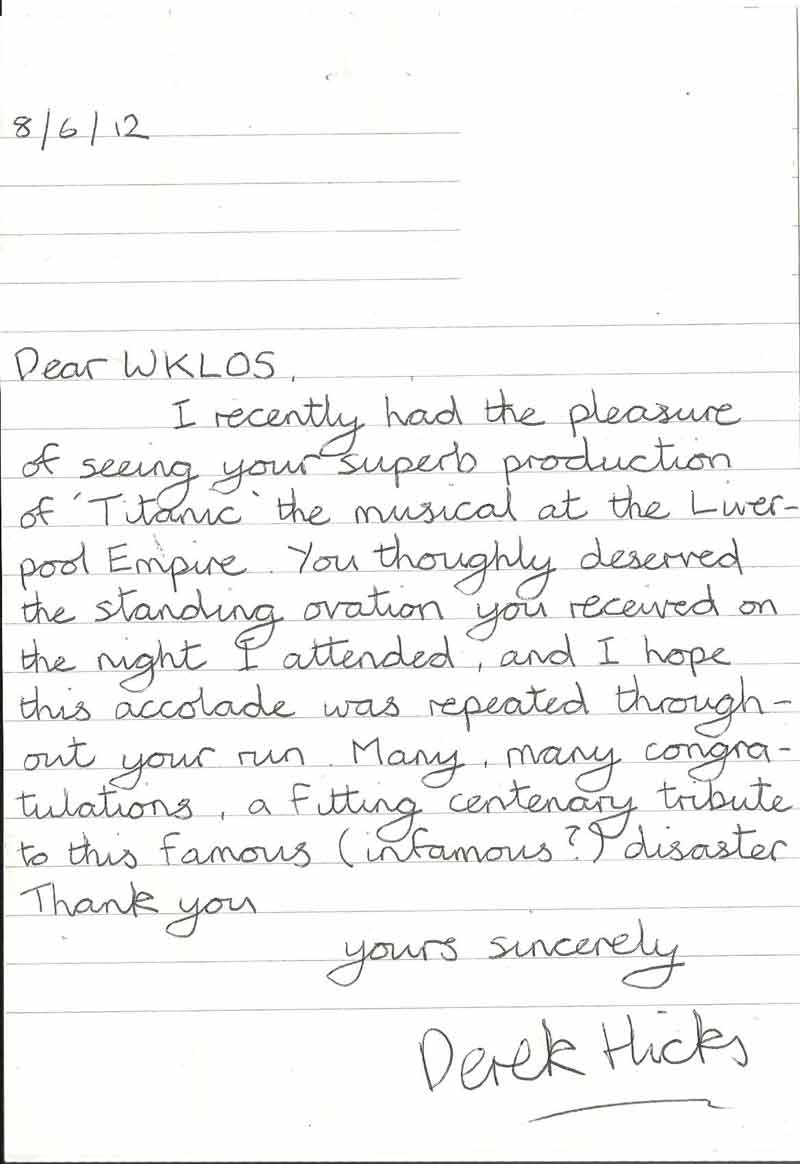 8/6/12
Dear WKLOS,
I recently had the pleasure
of seeing your superb production
of 'Titanic' the musical at the Liver-
pool Empire. You thoughly deserved
the standing ovation you received on
the night I attended, and I hope
this accolade was repeated through-
out your run. Many, many congra-
tulations, a fitting centenary tribute
to this famous (infamous?) disaster
Thank you
yours sincerely
Derek Hicks